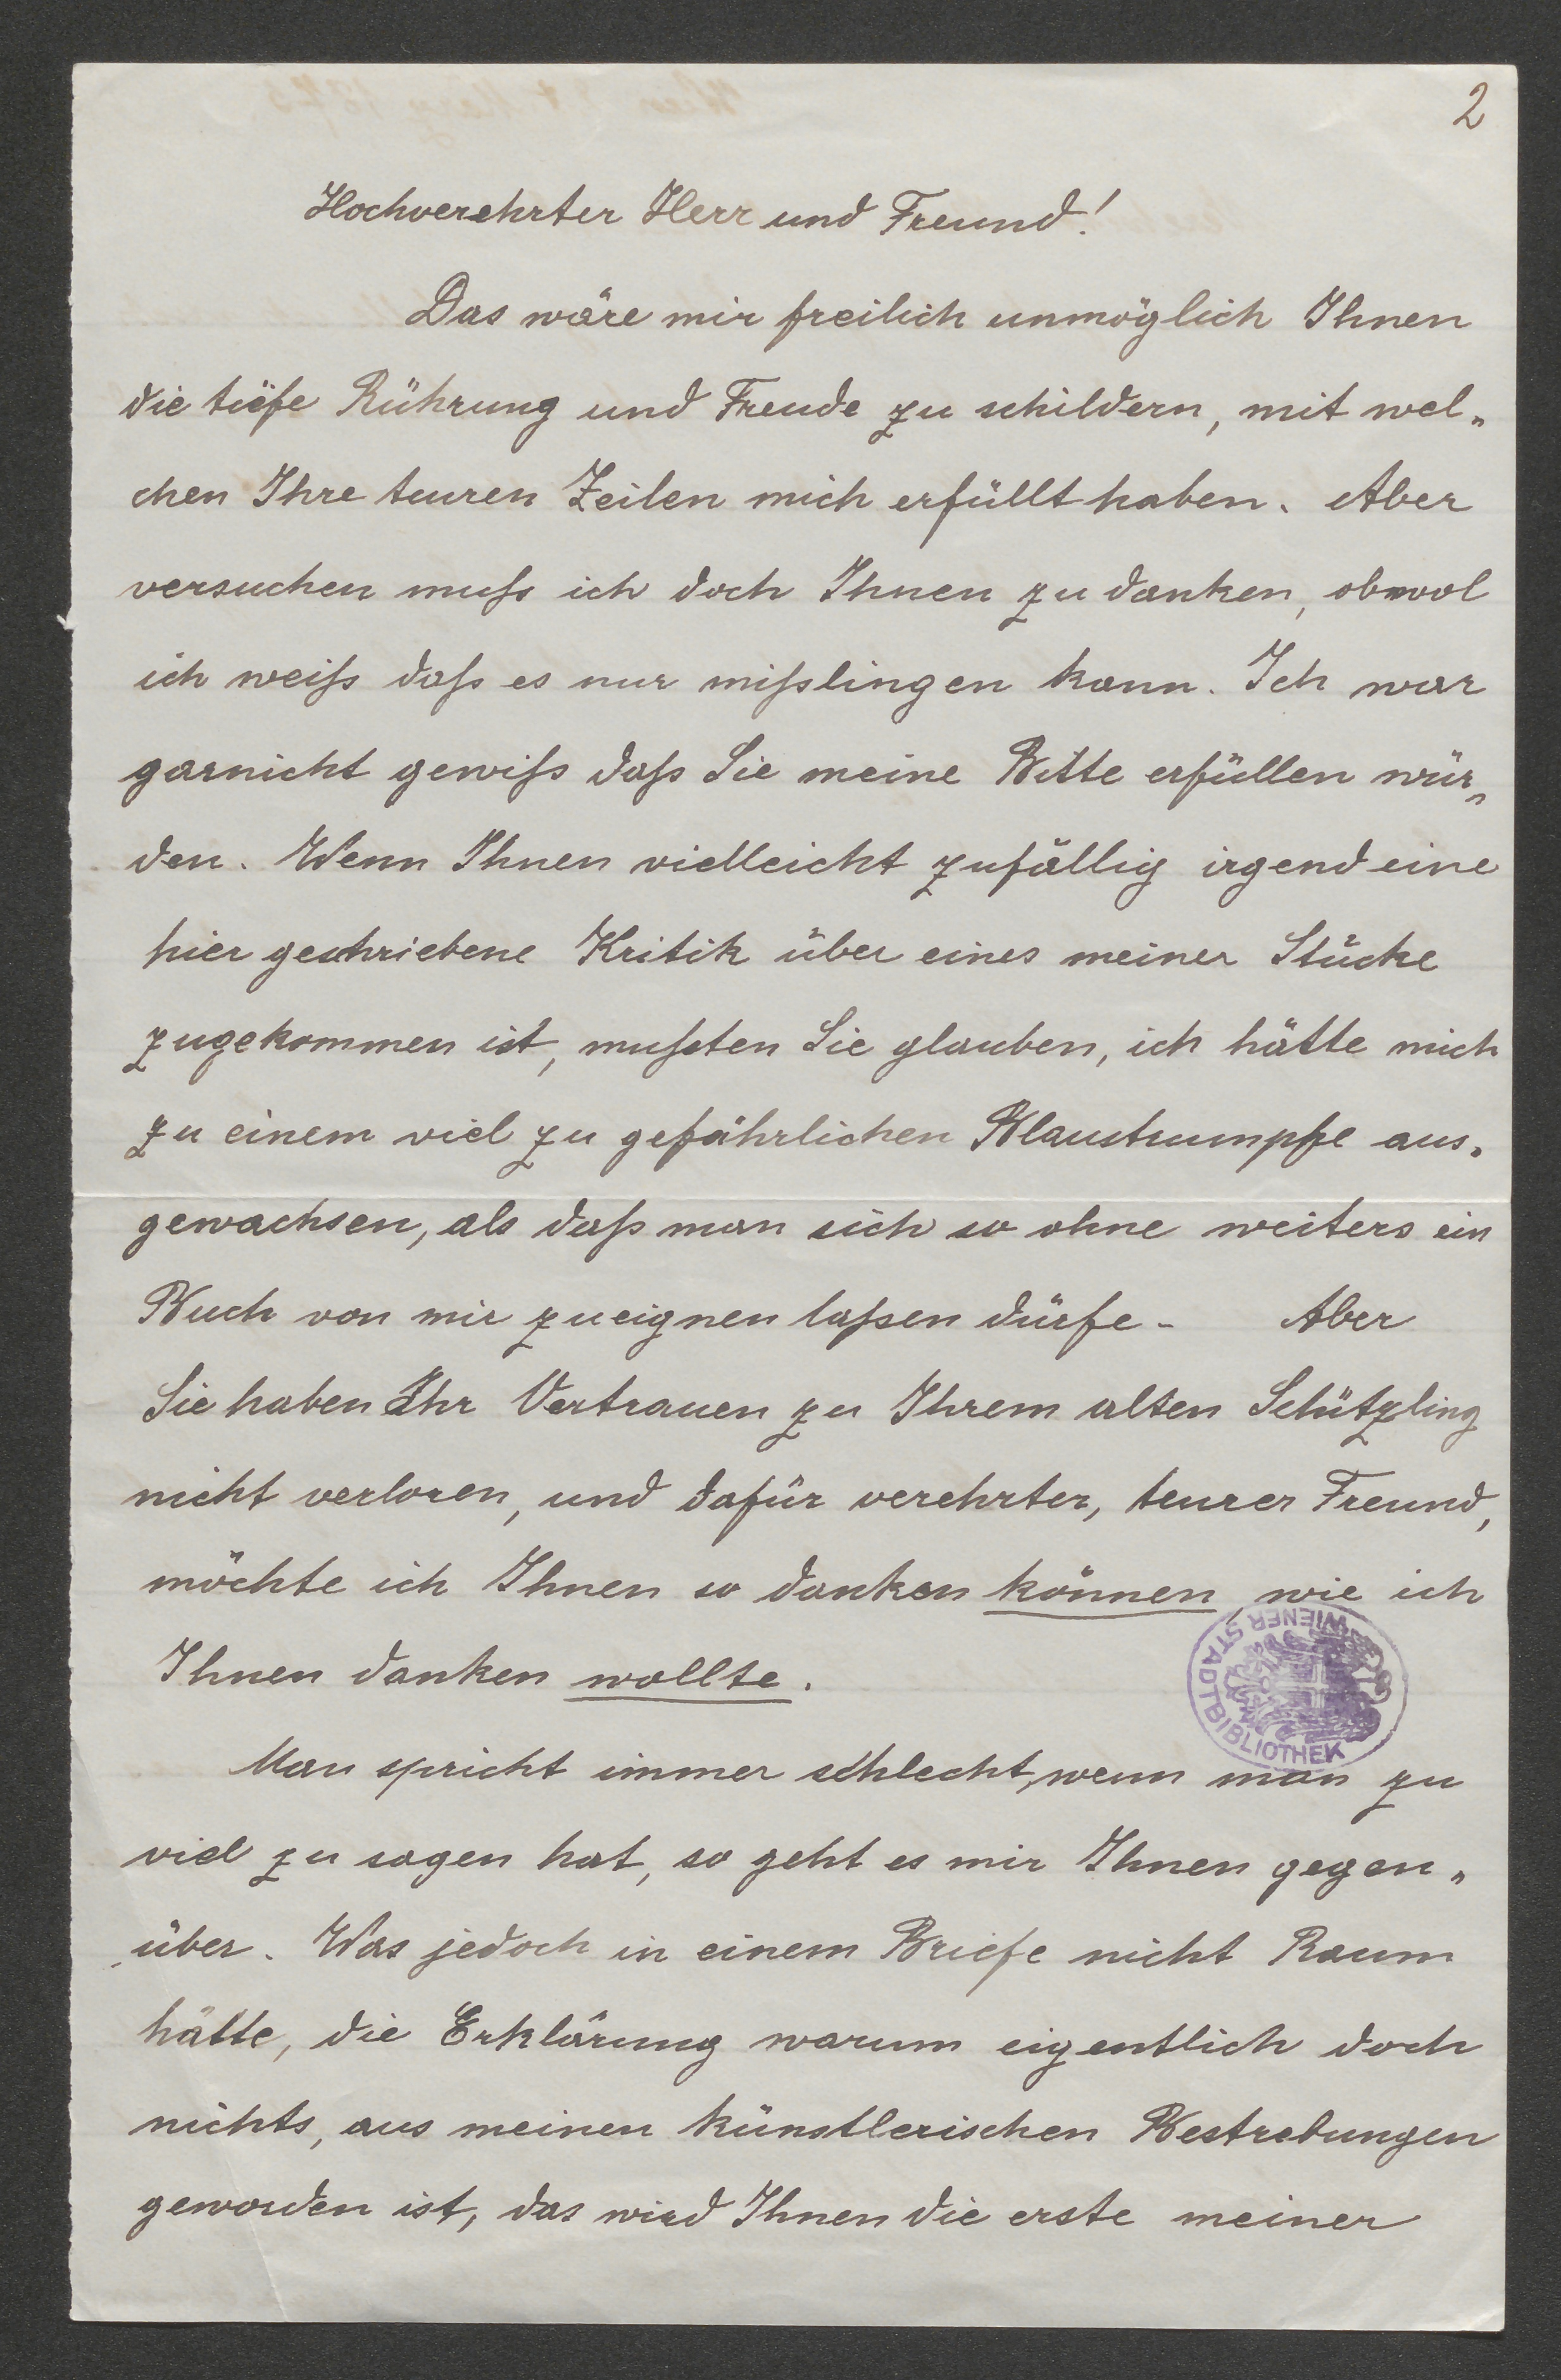 2
Hochverehrter Herr und Freund!
Das wäre mir freilich unmöglich Ihnen
die tiefe Rührung und Freude zu schildern, mit wel„
chen Ihre teuren Zeilen mich erfüllt haben. Aber
versuchen muſs ich doch Ihnen zu danken, obwol
ich weiſs daſs es nur miſslingen kann. Ich war
garnicht gewiſs daſs Sie meine Bitte erfüllen wür„
den. Wenn Ihnen vielleicht zufällig irgend eine
hier geschriebene Kritik über eines meiner Stücke
zugekommen ist, muſsten Sie glauben, ich hätte mich
zu einem viel zu gefährlichen Blaustrumpfe aus„
gewachsen, als daſs man sich so ohne weiters ein
Buch von mir zueignen laſsen dürfe – Aber
Sie haben Ihr Vertrauen zu Ihrem alten Schützling
nicht verloren, und dafür verehrter, teurer Freund,
möchte ich Ihnen so danken können, wie ich
Ihnen danken wollte.
WIENER STADTBIBLIOTHEK
Man spricht immer schlecht, wenn man zu
viel zu sagen hat, so geht es mir Ihnen gegen„
über. Was jedoch in einem Briefe nicht Raum
hätte, die Erklärung warum eigentlich doch
nichts, aus meinen künstlerischen Bestrebungen
geworden ist, das wird Ihnen die erste meiner